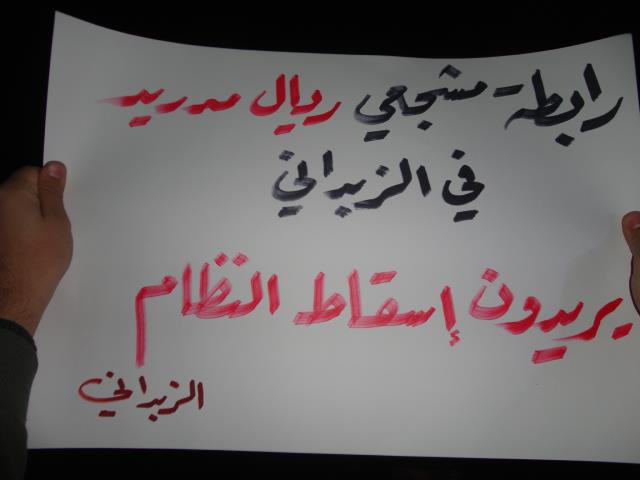 رابطة مشجعي ريال مدريد
في الزبداني
يريدون إسقاط النظام
الزبداني